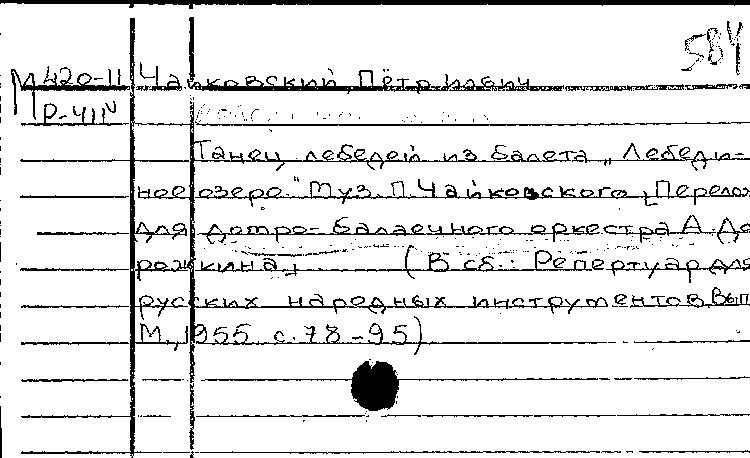 584
М420-11 Чайковский, Пётр Ильич
МР-411
Танец лебедей из балета „Лебеди-
ное озеро." Муз. П. Чайковского, [Перелож
для домро-балаечного оркестра А. До
рожкина]. (В сб.: Репертуар для
русских народных инструментов Вып
М., 1955 с. 78-95)